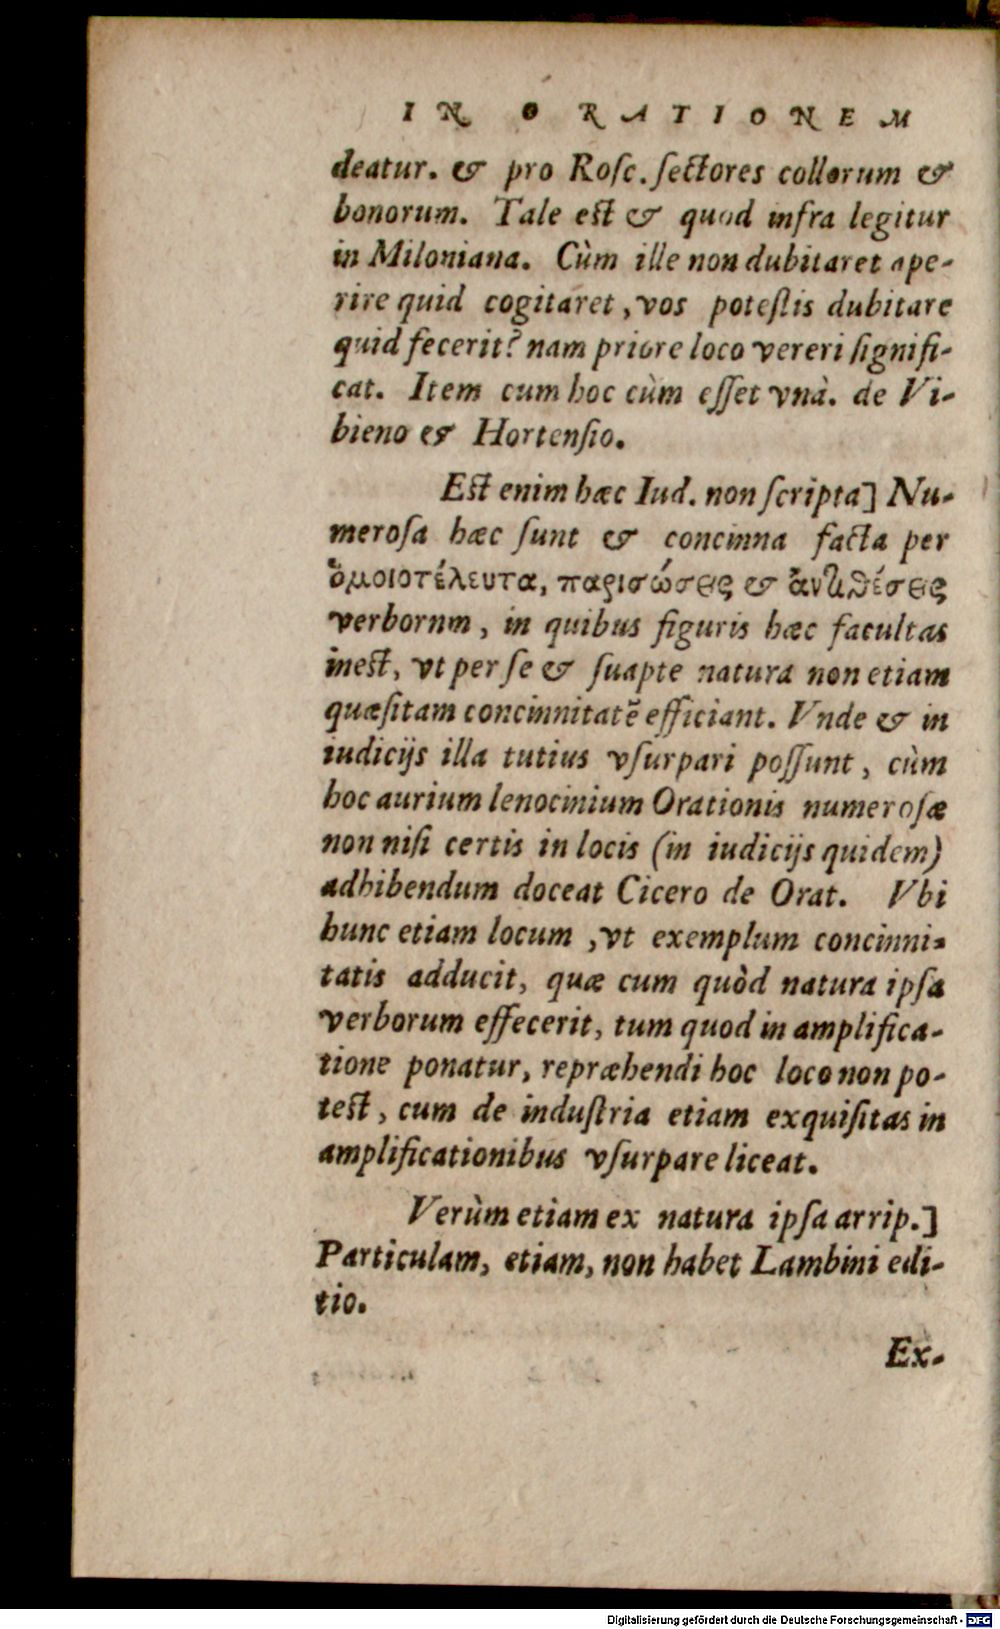 IN ORATIONEM
deatur. & pro Roſc. ſectores collorum &
bonorum. Tale est & quod infra legitur
in Miloniana. Cùm ille non dubitaret ape-
rire quid cogitaret, vos poteſtis dubitare
quid fecerit? nam priore loco vereri ſignifi-
cat. Item cum hoc cùm eſſet vnà. de Vi-
bieno & Hortenſio.
Est enim hæc Iud. non ſcripta] Nu-
meroſa hæc ſunt & concinna facta per
ὁμοιοτέλευτα, παρισώσεις & ἀντιθέσεις
verbornm, in quibus figuris hæc facultas
inest, vt per ſe & ſuapte natura non etiam
quæſitam concinnitatẽ efficiant. Vnde & in
iudicijs illa tutius vſurpari poſſunt, cùm
hoc aurium lenocinium Orationis numeroſæ
non niſi certis in locis (in iudicijs quidem)
adhibendum doceat Cicero de Orat. Vbi
hunc etiam locum, vt exemplum concinni-
tatis adducit, quæ cum quòd natura ipſa
verborum effecerit, tum quod in amplifica-
tione ponatur, repræhendi hoc loco non po-
test, cum de induſtria etiam exquiſitas in
amplificationibus vſurpare liceat.
Verùm etiam ex natura ipſa arrip.]
Particulam, etiam, non habet Lambini edi-
tio.
Ex-
Digitalisierung gefördert durch die Deutsche Forschungsgemeinschaft - DFG